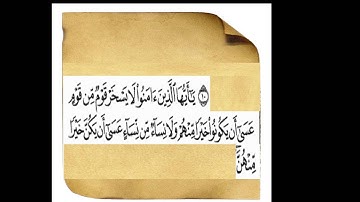 ۝١٠ يَٰٓأَيُّهَا ٱلَّذِينَ ءَامَنُوا۟ لَا يَسْخَرْ قَوْمٌ مِّن قَوْمٍ
عَسَىٰٓ أَن يَكُونُوا۟ خَيْرًا مِّنْهُمْ وَلَا نِسَآءٌ مِّن نِّسَآءٍ عَسَىٰٓ أَن يَكُنَّ خَيْرًا
مِّنْهُنَّ